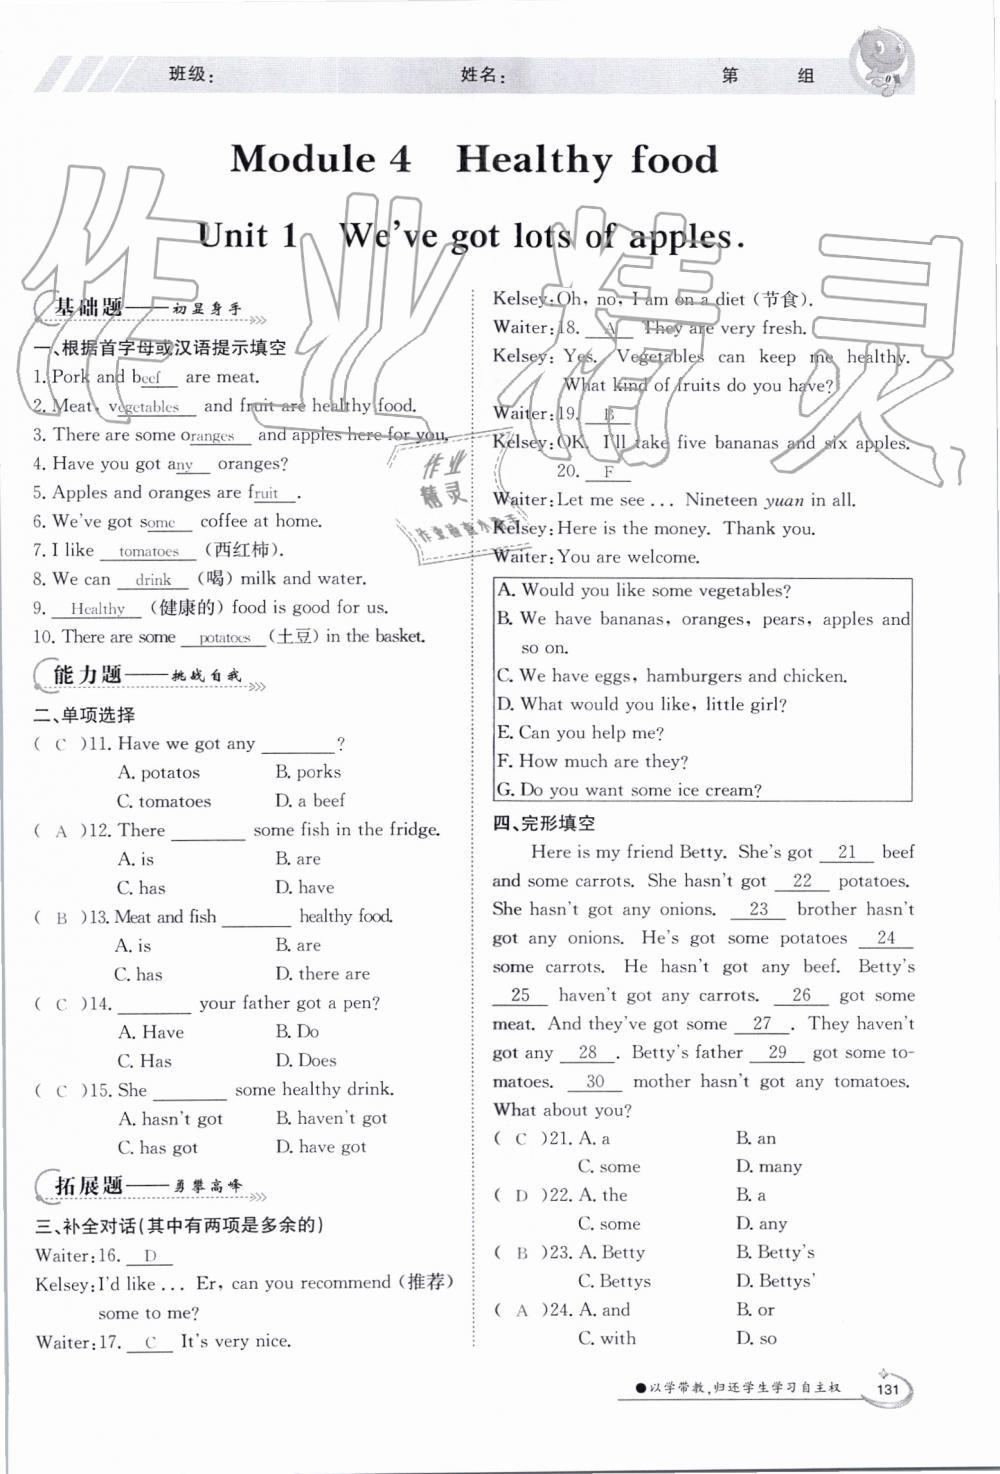 班级:
姓名:
第 组
Module 4 Healthy food
Unit 1 We've got lots of apples.
基础题——初显身手
一、根据首字母或汉语提示填空
1. Pork and beef are meat.
2. Meat, vegetables and fruit are healthy food.
3. There are some oranges and apples here for you.
4. Have you got any oranges?
5. Apples and oranges are fruit.
6. We've got some coffee at home.
7. I like tomatoes (西红柿).
8. We can drink (喝) milk and water.
9. Healthy (健康的) food is good for us.
10. There are some potatoes (土豆) in the basket.
能力题——挑战自我
二、单项选择
( C )11. Have we got any ________?
A. potatos B. porks
C. tomatoes D. a beef
( A )12. There ________ some fish in the fridge.
A. is B. are
C. has D. have
( B )13. Meat and fish ________ healthy food.
A. is B. are
C. has D. there are
( C )14. ________ your father got a pen?
A. Have B. Do
C. Has D. Does
( C )15. She ________ some healthy drink.
A. hasn't got B. haven't got
C. has got D. have got
拓展题——勇攀高峰
三、补全对话(其中有两项是多余的)
Waiter:16. D
Kelsey:I'd like ... Er, can you recommend (推荐)
some to me?
Waiter:17. C It's very nice.
Kelsey:Oh, no, I am on a diet (节食).
Waiter:18. A They are very fresh.
Kelsey: Yes. Vegetables can keep me healthy.
What kind of fruits do you have?
Waiter:19. B
Kelsey:OK. I'll take five bananas and six apples.
20. F
Waiter:Let me see ... Nineteen yuan in all.
Kelsey:Here is the money. Thank you.
Waiter:You are welcome.
A. Would you like some vegetables?
B. We have bananas, oranges, pears, apples and
so on.
C. We have eggs, hamburgers and chicken.
D. What would you like, little girl?
E. Can you help me?
F. How much are they?
G. Do you want some ice cream?
四、完形填空
Here is my friend Betty. She's got 21 beef
and some carrots. She hasn't got 22 potatoes.
She hasn't got any onions. 23 brother hasn't
got any onions. He's got some potatoes 24
some carrots. He hasn't got any beef. Betty's
25 haven't got any carrots. 26 got some
meat. And they've got some 27 . They haven't
got any 28 . Betty's father 29 got some to-
matoes. 30 mother hasn't got any tomatoes.
What about you?
( C )21. A. a B. an
C. some D. many
( D )22. A. the B. a
C. some D. any
( B )23. A. Betty B. Betty's
C. Bettys D. Bettys'
( A )24. A. and B. or
C. with D. so
●以学带教,归还学生学习自主权
131
作业精灵
作业
精灵